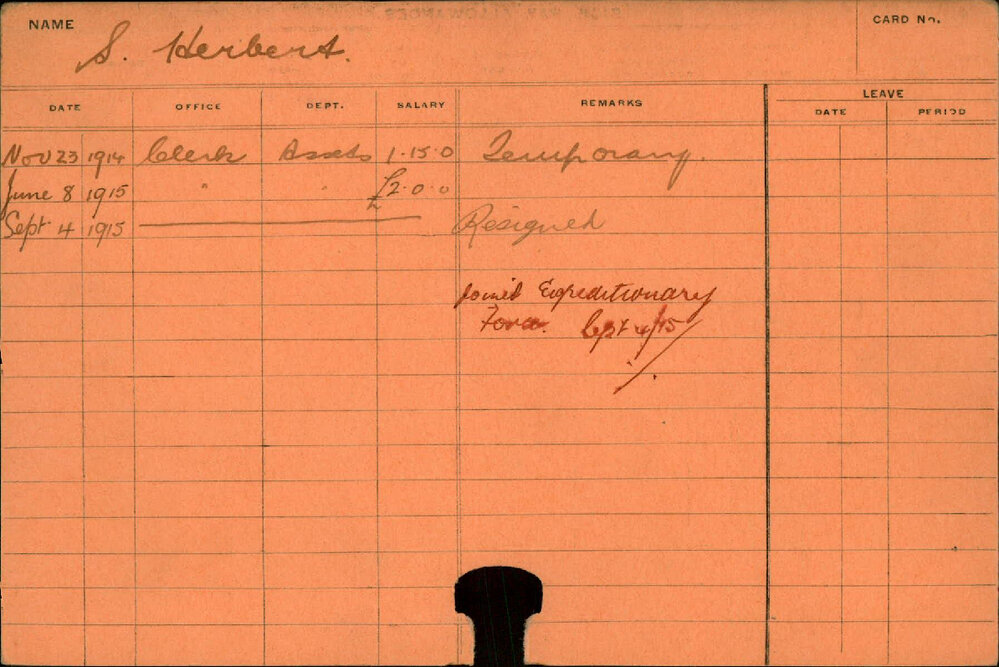 NAME S. Herbert. CARD No.
DATE OFFICE DEPT. SALARY REMARKS LEAVE
DATE PERIOD
Nov 23 1914 Clerk Assets 1.15.0 Temporary.
June 8 1915 " " £2.0.0
Sept 4 1915 Resigned
Joined Expeditionary
Force. Sept 4/15